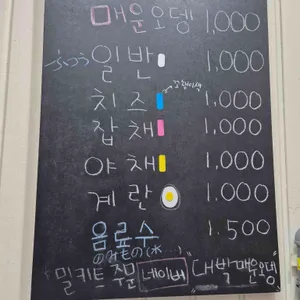 매운오뎅 1,000
일반 1,000
치즈 1,000
잡채 1,000
야채 1,000
계란 1,000
음료수 1.500
のみもの(水...)
밀키트 주문 네이버 대박매운오뎅